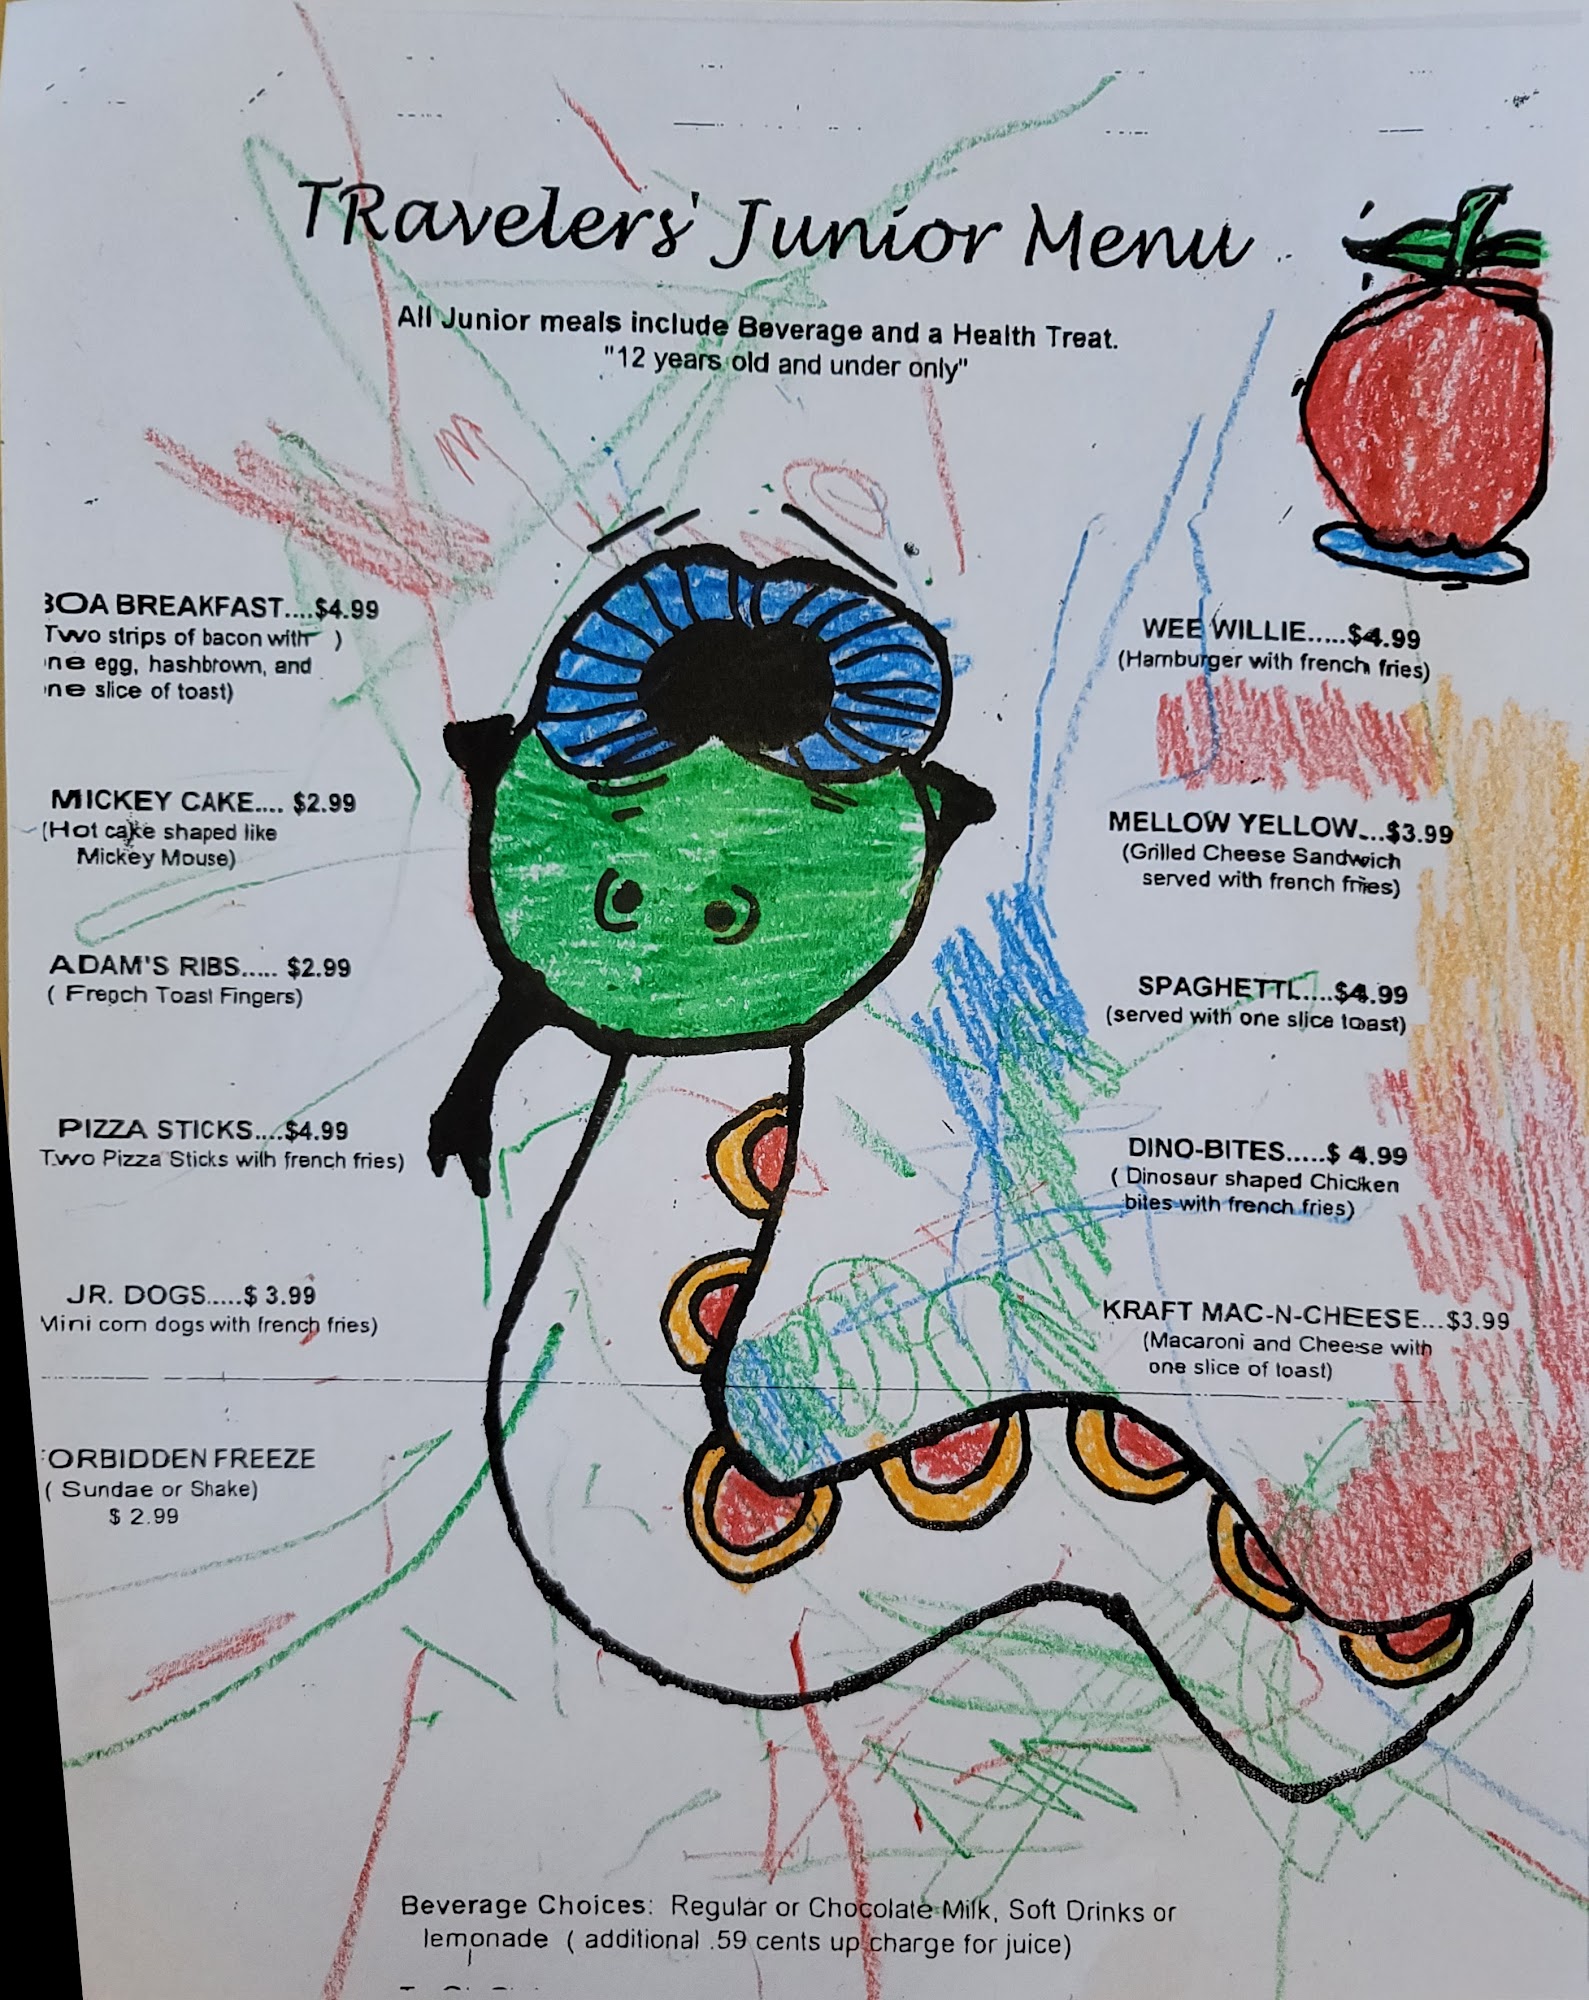 TRavelers' Junior Menu
All Junior meals include Beverage and a Health Treat.
"12 years old and under only"
BOA BREAKFAST....$4.99
Two strips of bacon with )
ne egg, hashbrown, and
ne slice of toast)
MICKEY CAKE.... $2.99
(Hot cake shaped like
Mickey Mouse)
ADAM'S RIBS..... $2.99
( French Toast Fingers)
PIZZA STICKS....$4.99
Two Pizza Sticks with french fries)
JR. DOGS.....$ 3.99
Mini corn dogs with french fries)
ORBIDDEN FREEZE
( Sundae or Shake)
$ 2.99
WEE WILLIE.....$4.99
(Hamburger with french fries)
MELLOW YELLOW...$3.99
(Grilled Cheese Sandwich
served with french fries)
SPAGHETTI....$4.99
(served with one slice toast)
DINO-BITES.....$ 4.99
( Dinosaur shaped Chicken
bites with french fries)
KRAFT MAC-N-CHEESE...$3.99
(Macaroni and Cheese with
one slice of toast)
Beverage Choices: Regular or Chocolate Milk, Soft Drinks or
lemonade ( additional .59 cents up charge for juice)